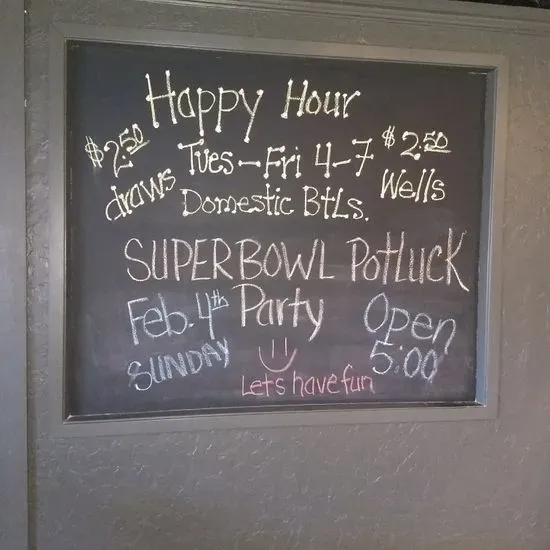 Happy Hour
$2.50 Tues-Fri 4-7 $2.50
draws Domestic BtLs. Wells
SUPERBOWL PotLuck
Feb. 4th Party Open
SUNDAY 5:00
Lets have fun